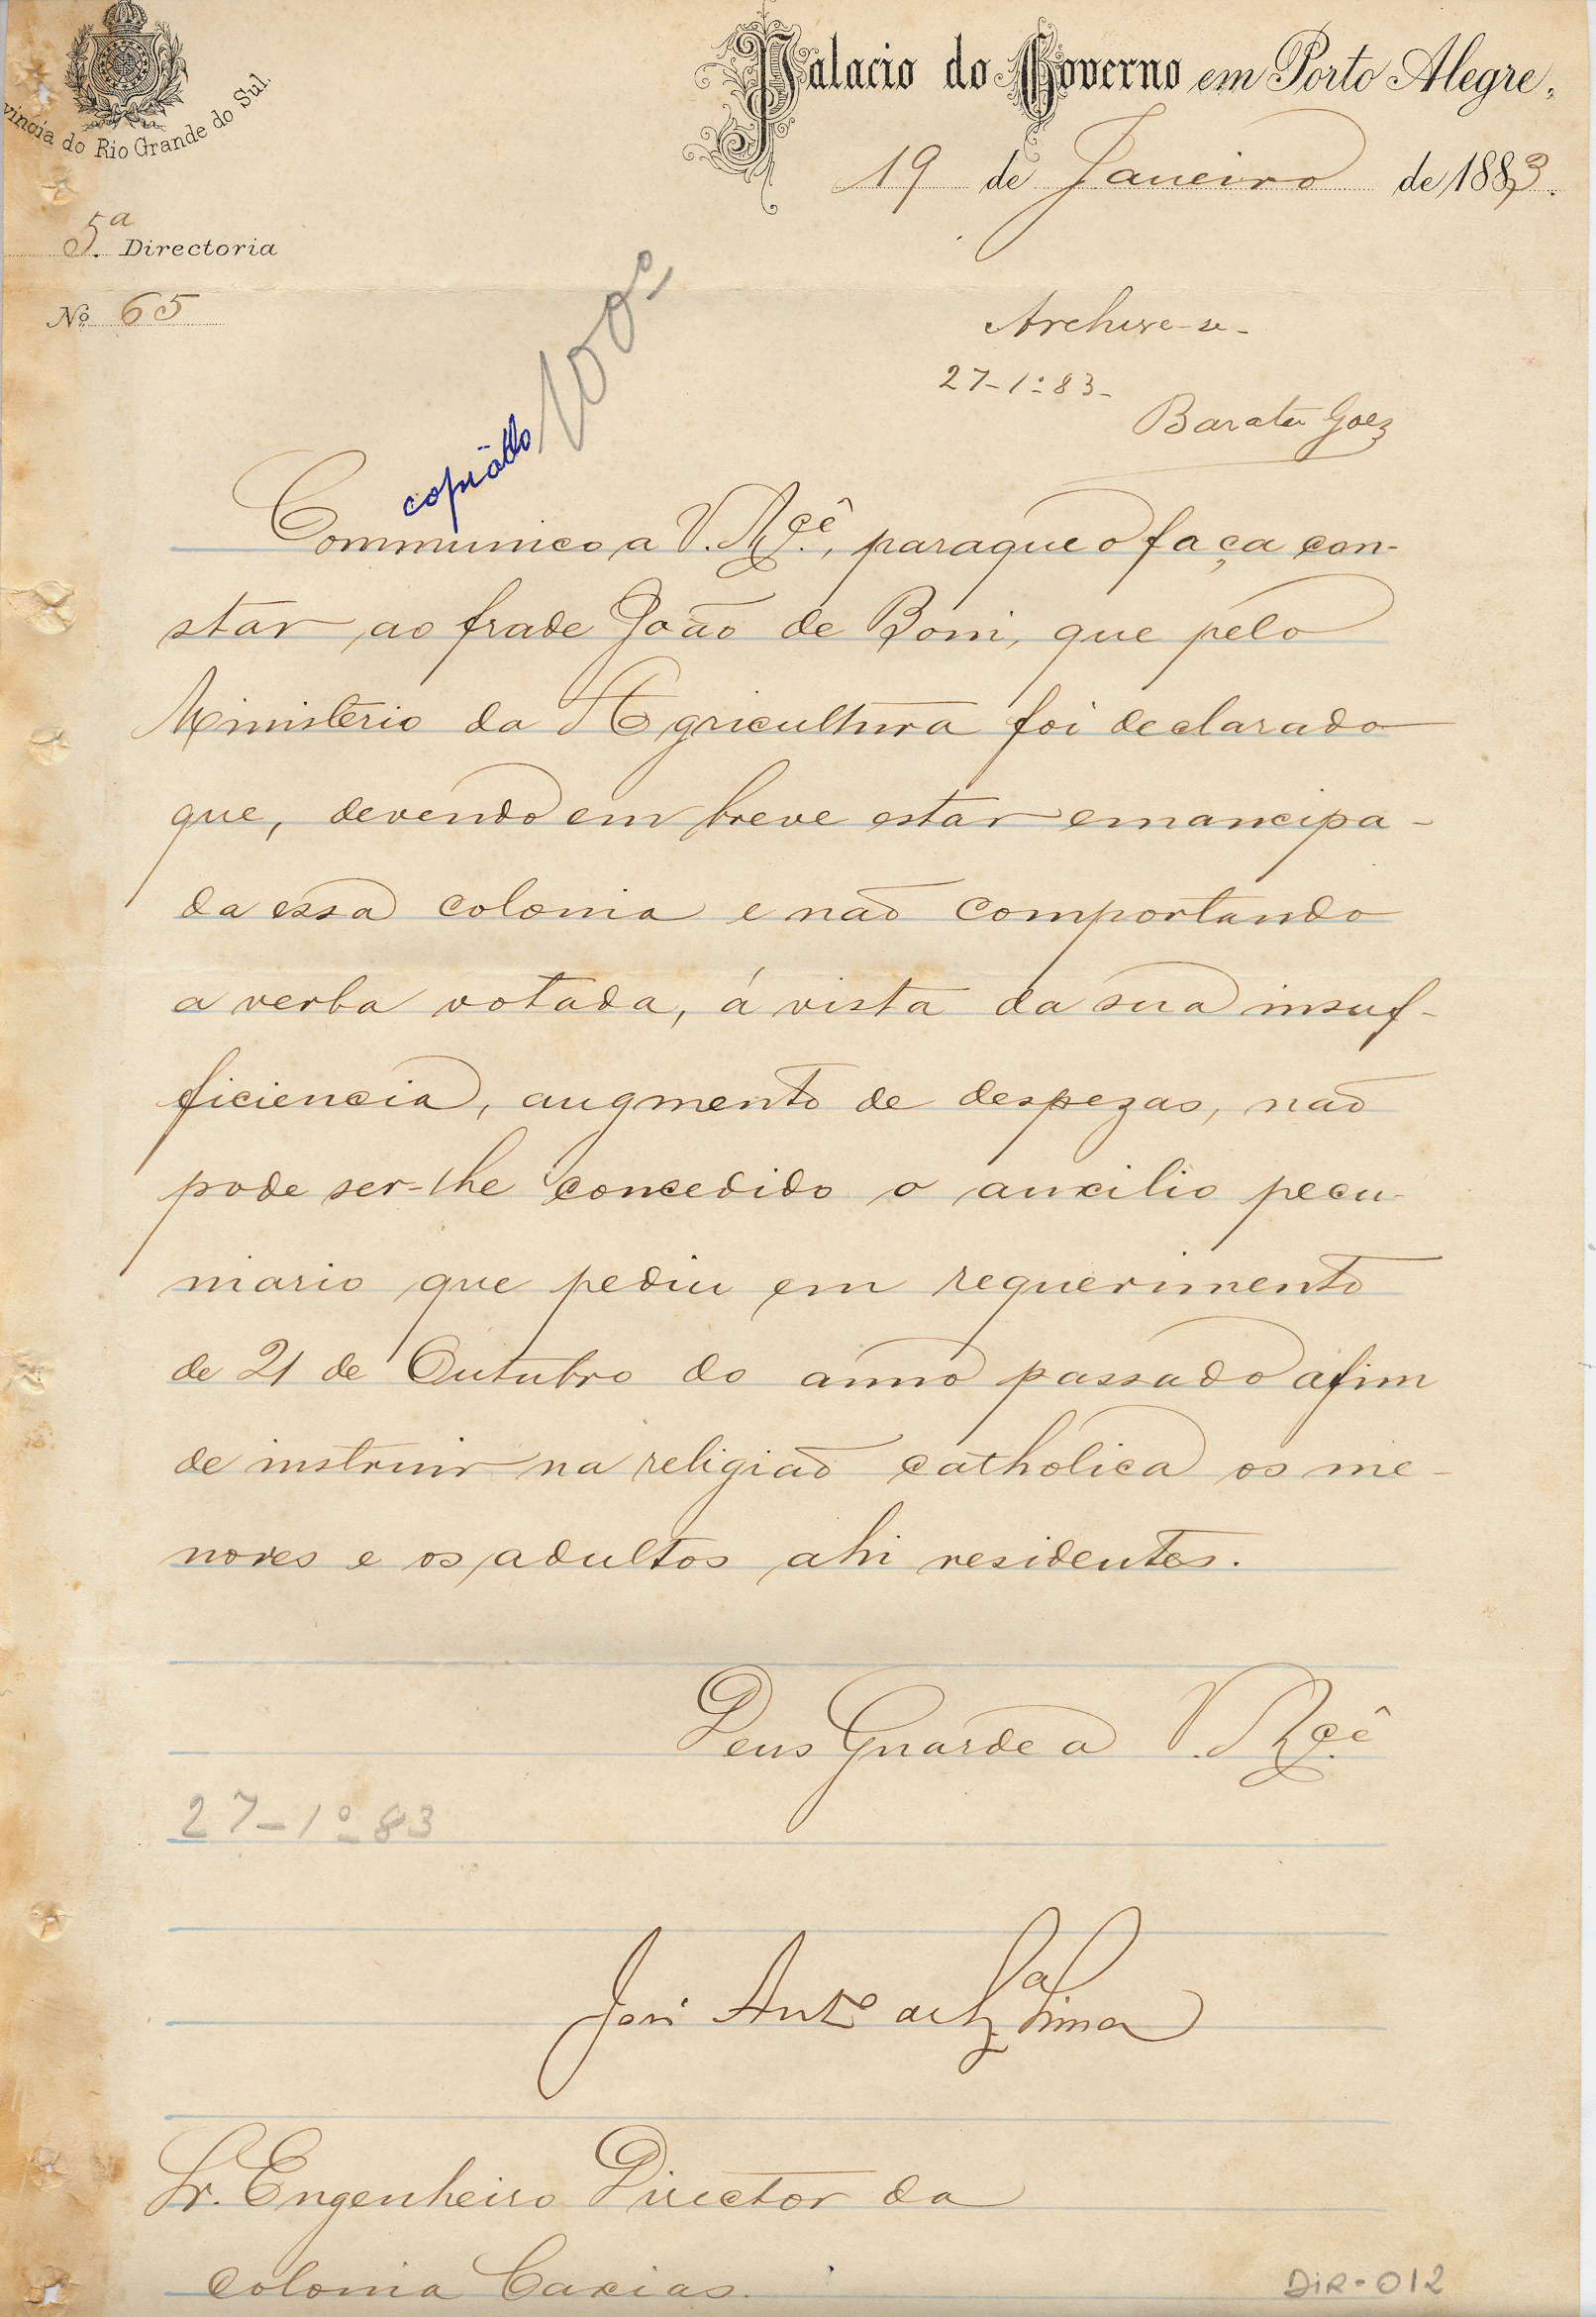 Palacio do Governo em Porto Alegre,
vincia do Rio Grande do Sul.
19 de Janeiro de 1883.
5ª Directoria
Nº 65
Archive-se-
27-1º-83-
Barata Goez
copiado
100º
Communico a V. Mcê, para que o faça con-
star ao frade João de Boni, que pelo
Ministerio da Agricultura foi declarado
que, devendo em breve estar emancipa-
da essa colonia e não comportando
a verba votada, á vista da sua insuf-
ficiencia, augmento de despezas, não
pode ser-lhe concedido o auxilio pecu-
niario que pediu em requerimento
de 21 de Outubro do anno passado afim
de instruir na religião catholica os me-
nores e os adultos ahi residentes.
Deus Guarde a V. Mcê
27-1º-83
José Antº de Lima
Sr. Engenheiro Director da
Colonia Caxias.
DIR-012